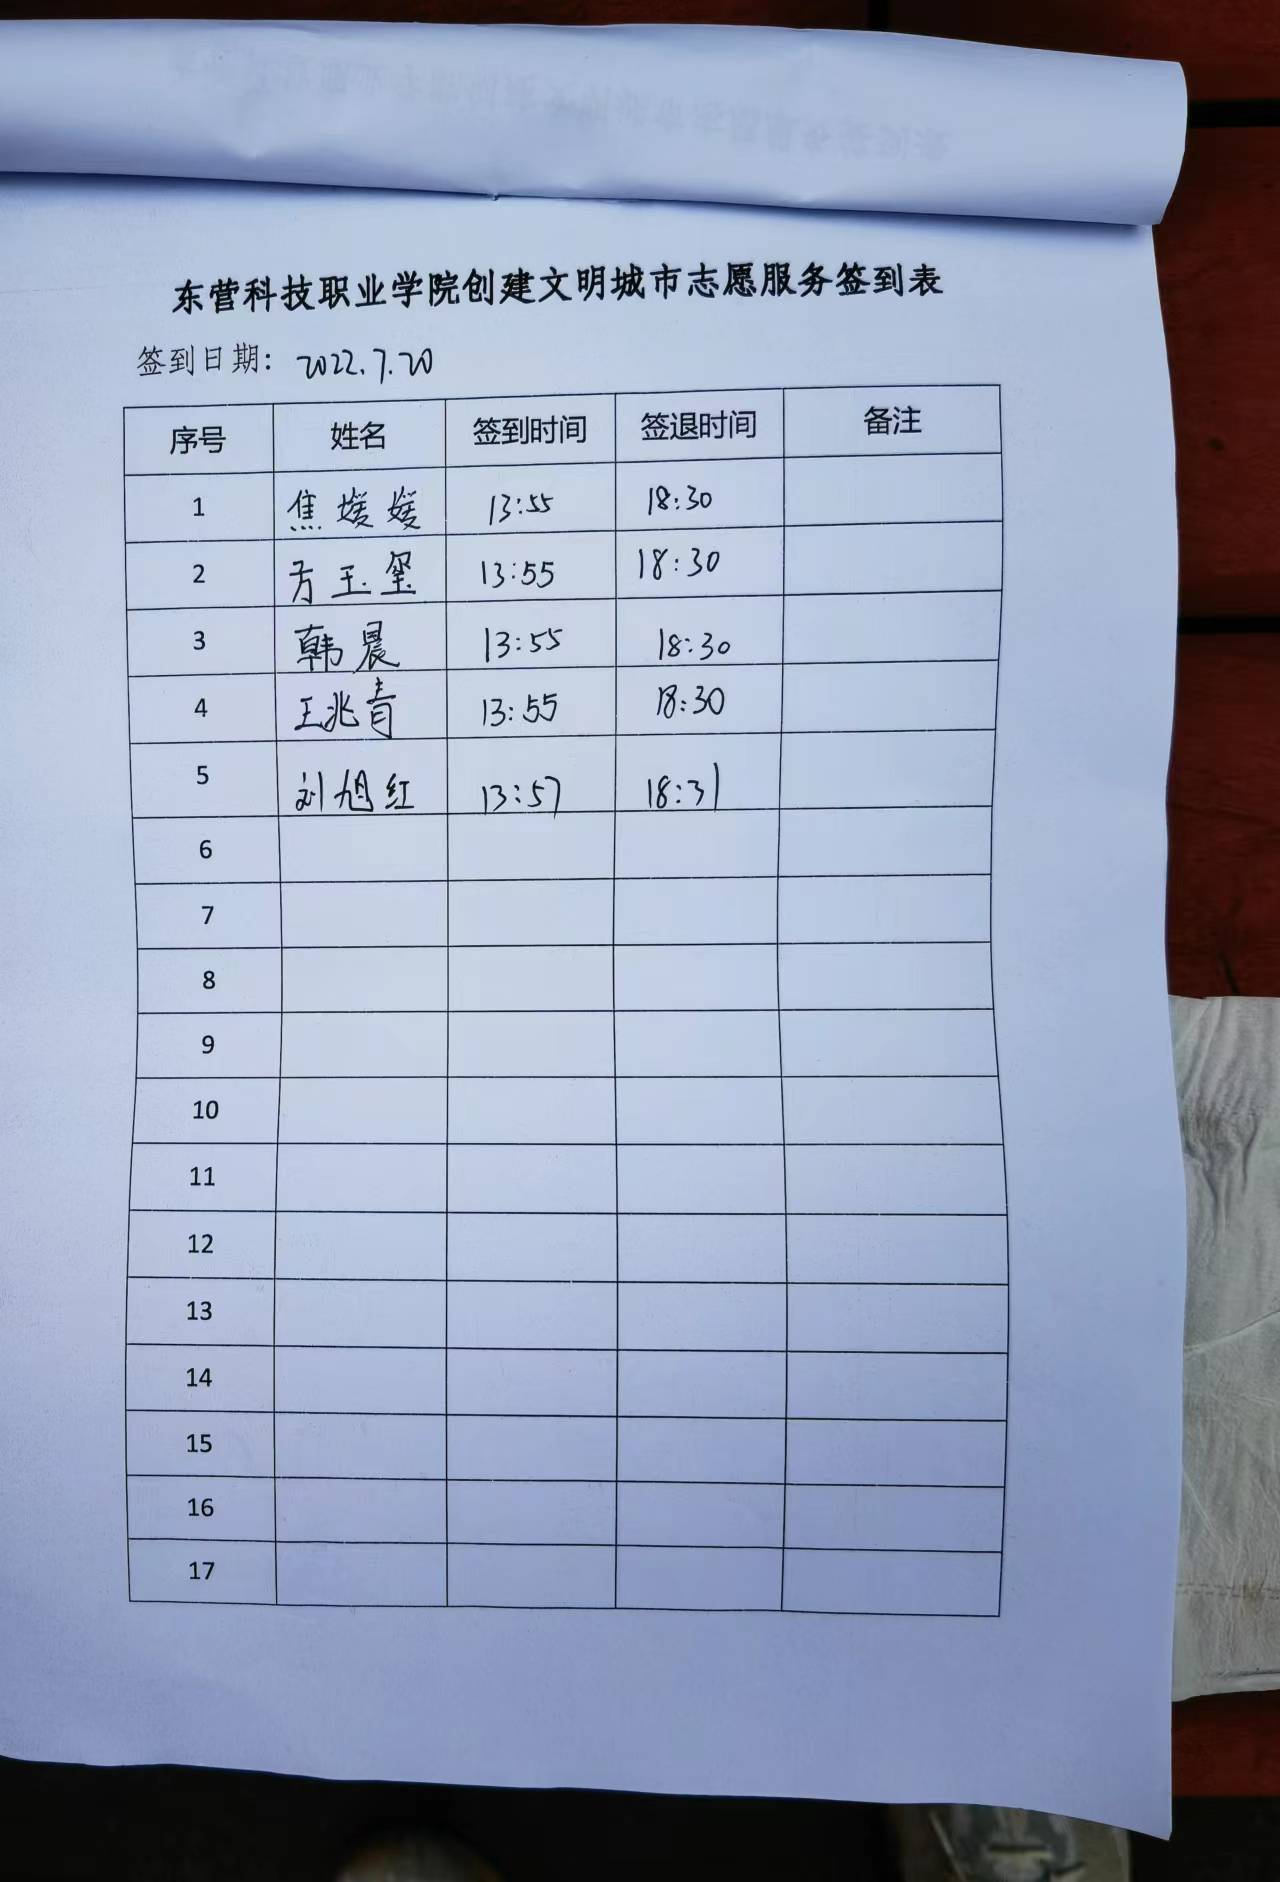 东营科技职业学院创建文明城市志愿服务签到表
签到日期: 2022.7.20
序号 姓名 签到时间 签退时间 备注
1 焦媛媛 13:55 18:30
2 方玉玺 13:55 18:30
3 韩晨 13:55 18:30
4 王兆青 13:55 18:30
5 刘旭红 13:57 18:31
6
7
8
9
10
11
12
13
14
15
16
17